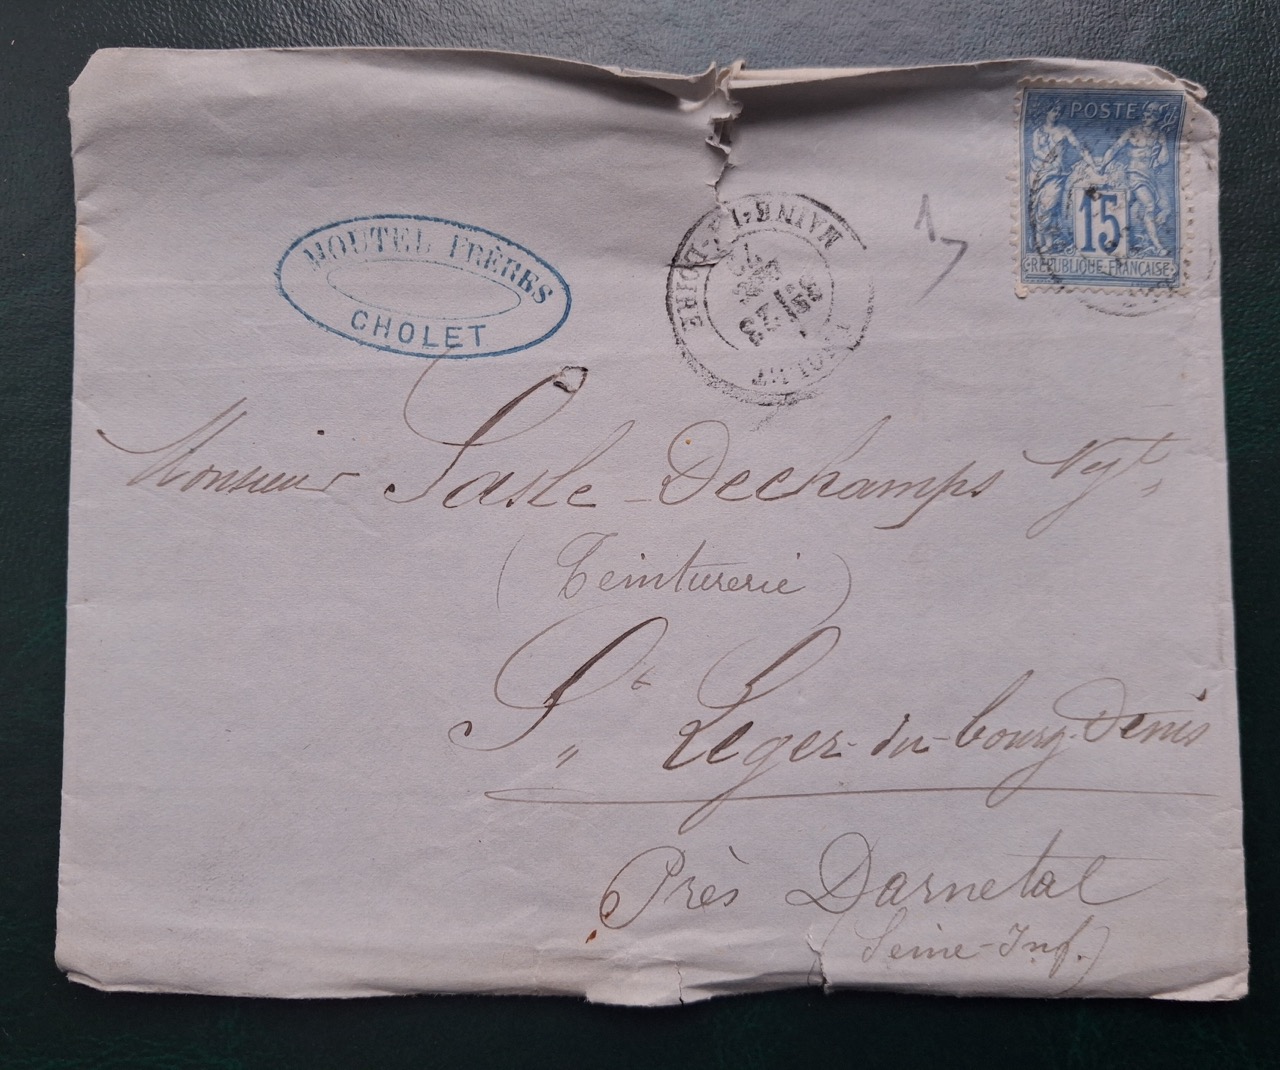 POSTE
15
RÉPUBLIQUE FRANÇAISE
MOUTEL FRÈRES
CHOLET
MAINE-ET-LOIRE
23
79
CHOLET
1
Monsieur Sasle-Dechamps Nyt
(Teinturerie)
St Leger-du-bourg-Denis
Près Darnetal
(Seine-Inf.)